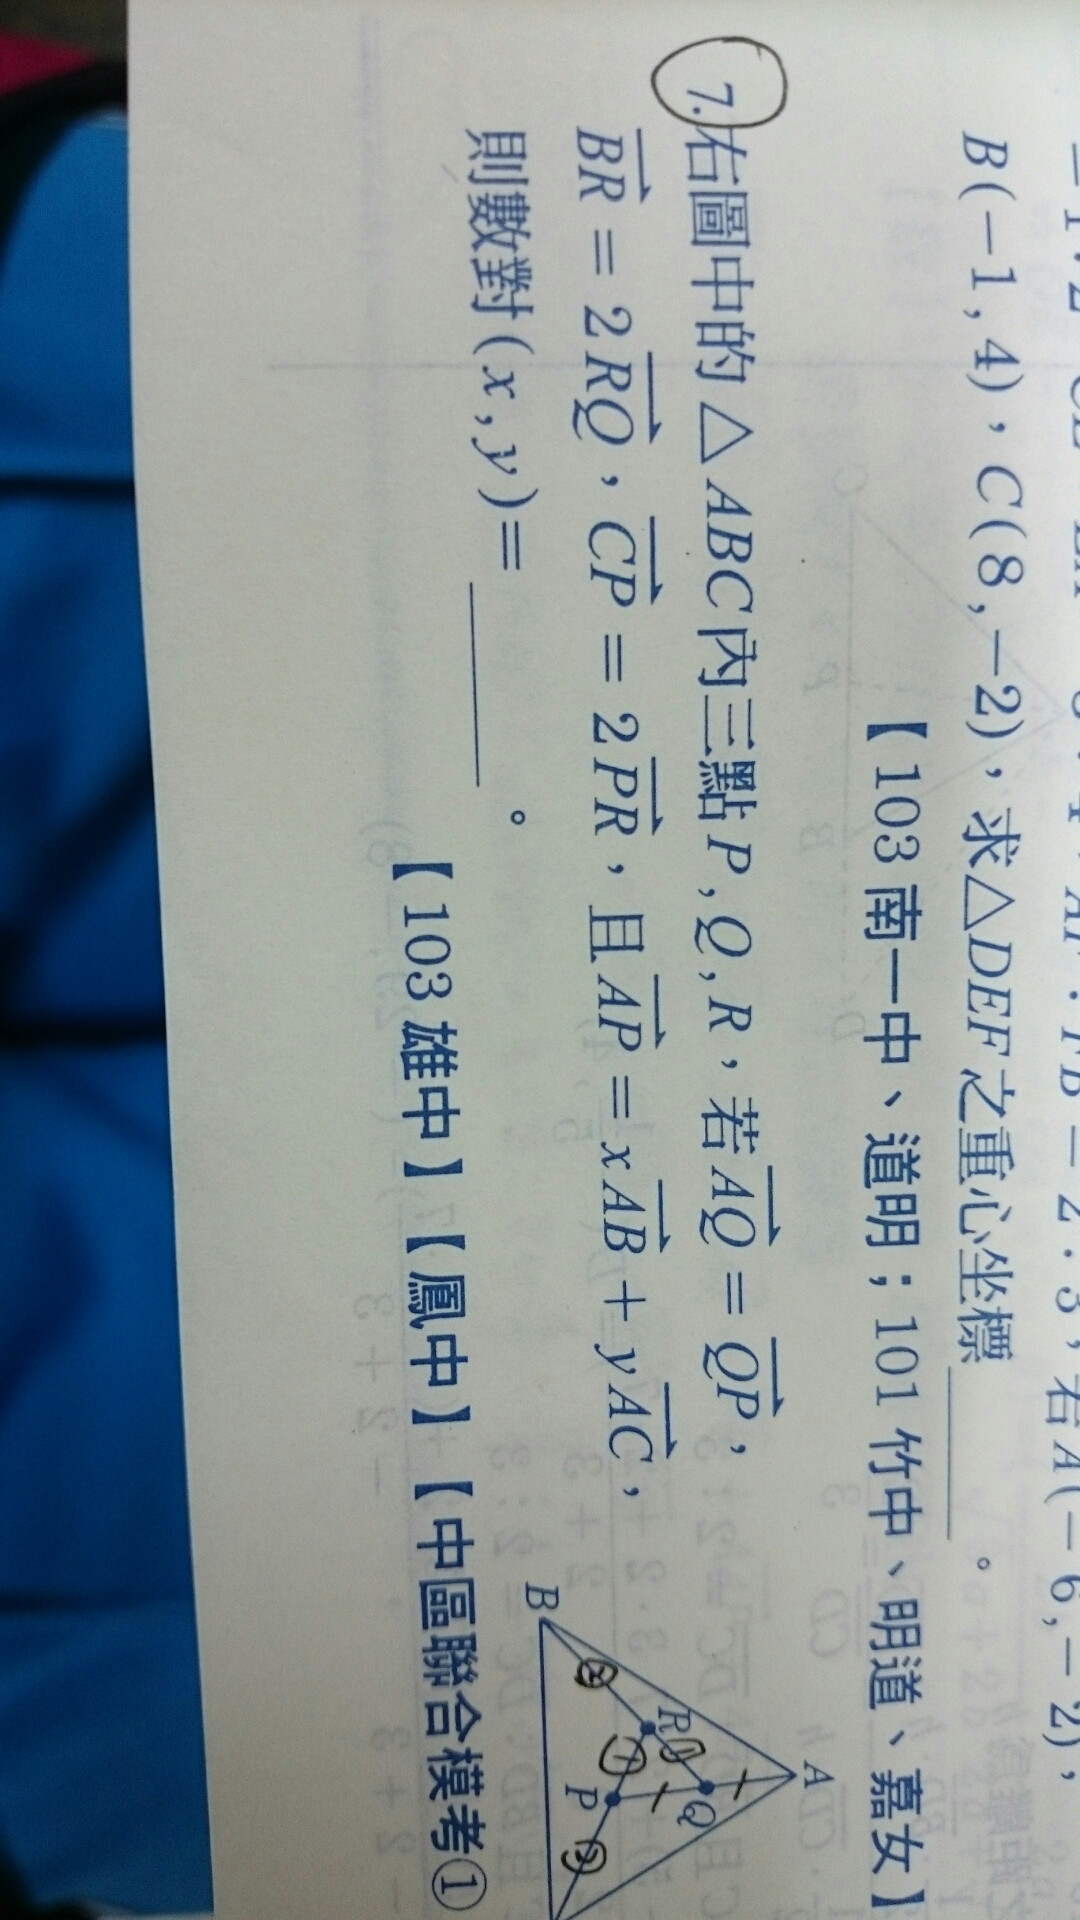 B(-1,4),C(8,-2),求△DEF之重心坐標______。
【103南一中、道明;101竹中、明道、嘉女】
7.右圖中的△ABC內三點P,Q,R,若AQ=QP,
BR=2RQ,CP=2PR,且AP=xAB+yAC,
則數對(x,y)=______。
【103雄中】【鳳中】【中區聯合模考①】
A
B
R
Q
P
②
①
①
②